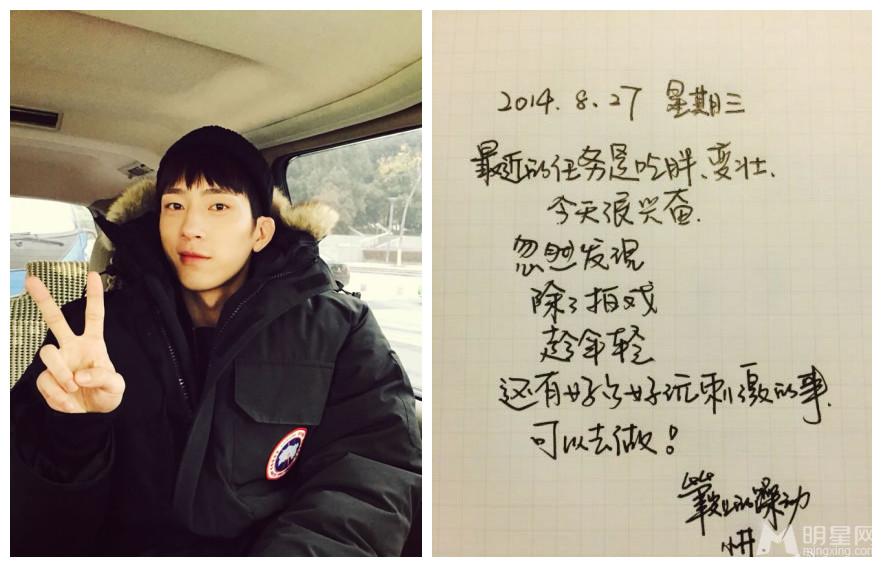 2014.8.27 星期三
最近的任务是吃胖、变壮.
今天很兴奋.
忽然发现
除了拍戏
趁年轻
还有好多好玩刺激的事.
可以去做!
的躁动
明星网
mingxing.com